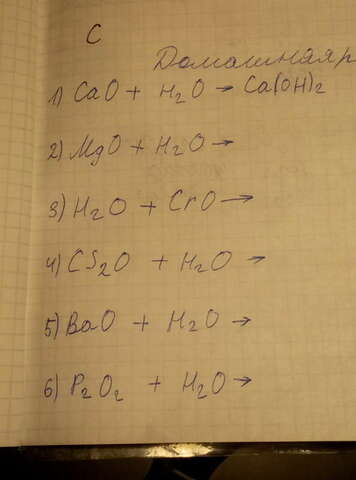 С
Домашняя р
1) CaO + H₂O → Ca(OH)₂
2) MgO + H₂O →
3) H₂O + CrO →
4) CS₂O + H₂O →
5) BaO + H₂O →
6) P₂O₂ + H₂O →